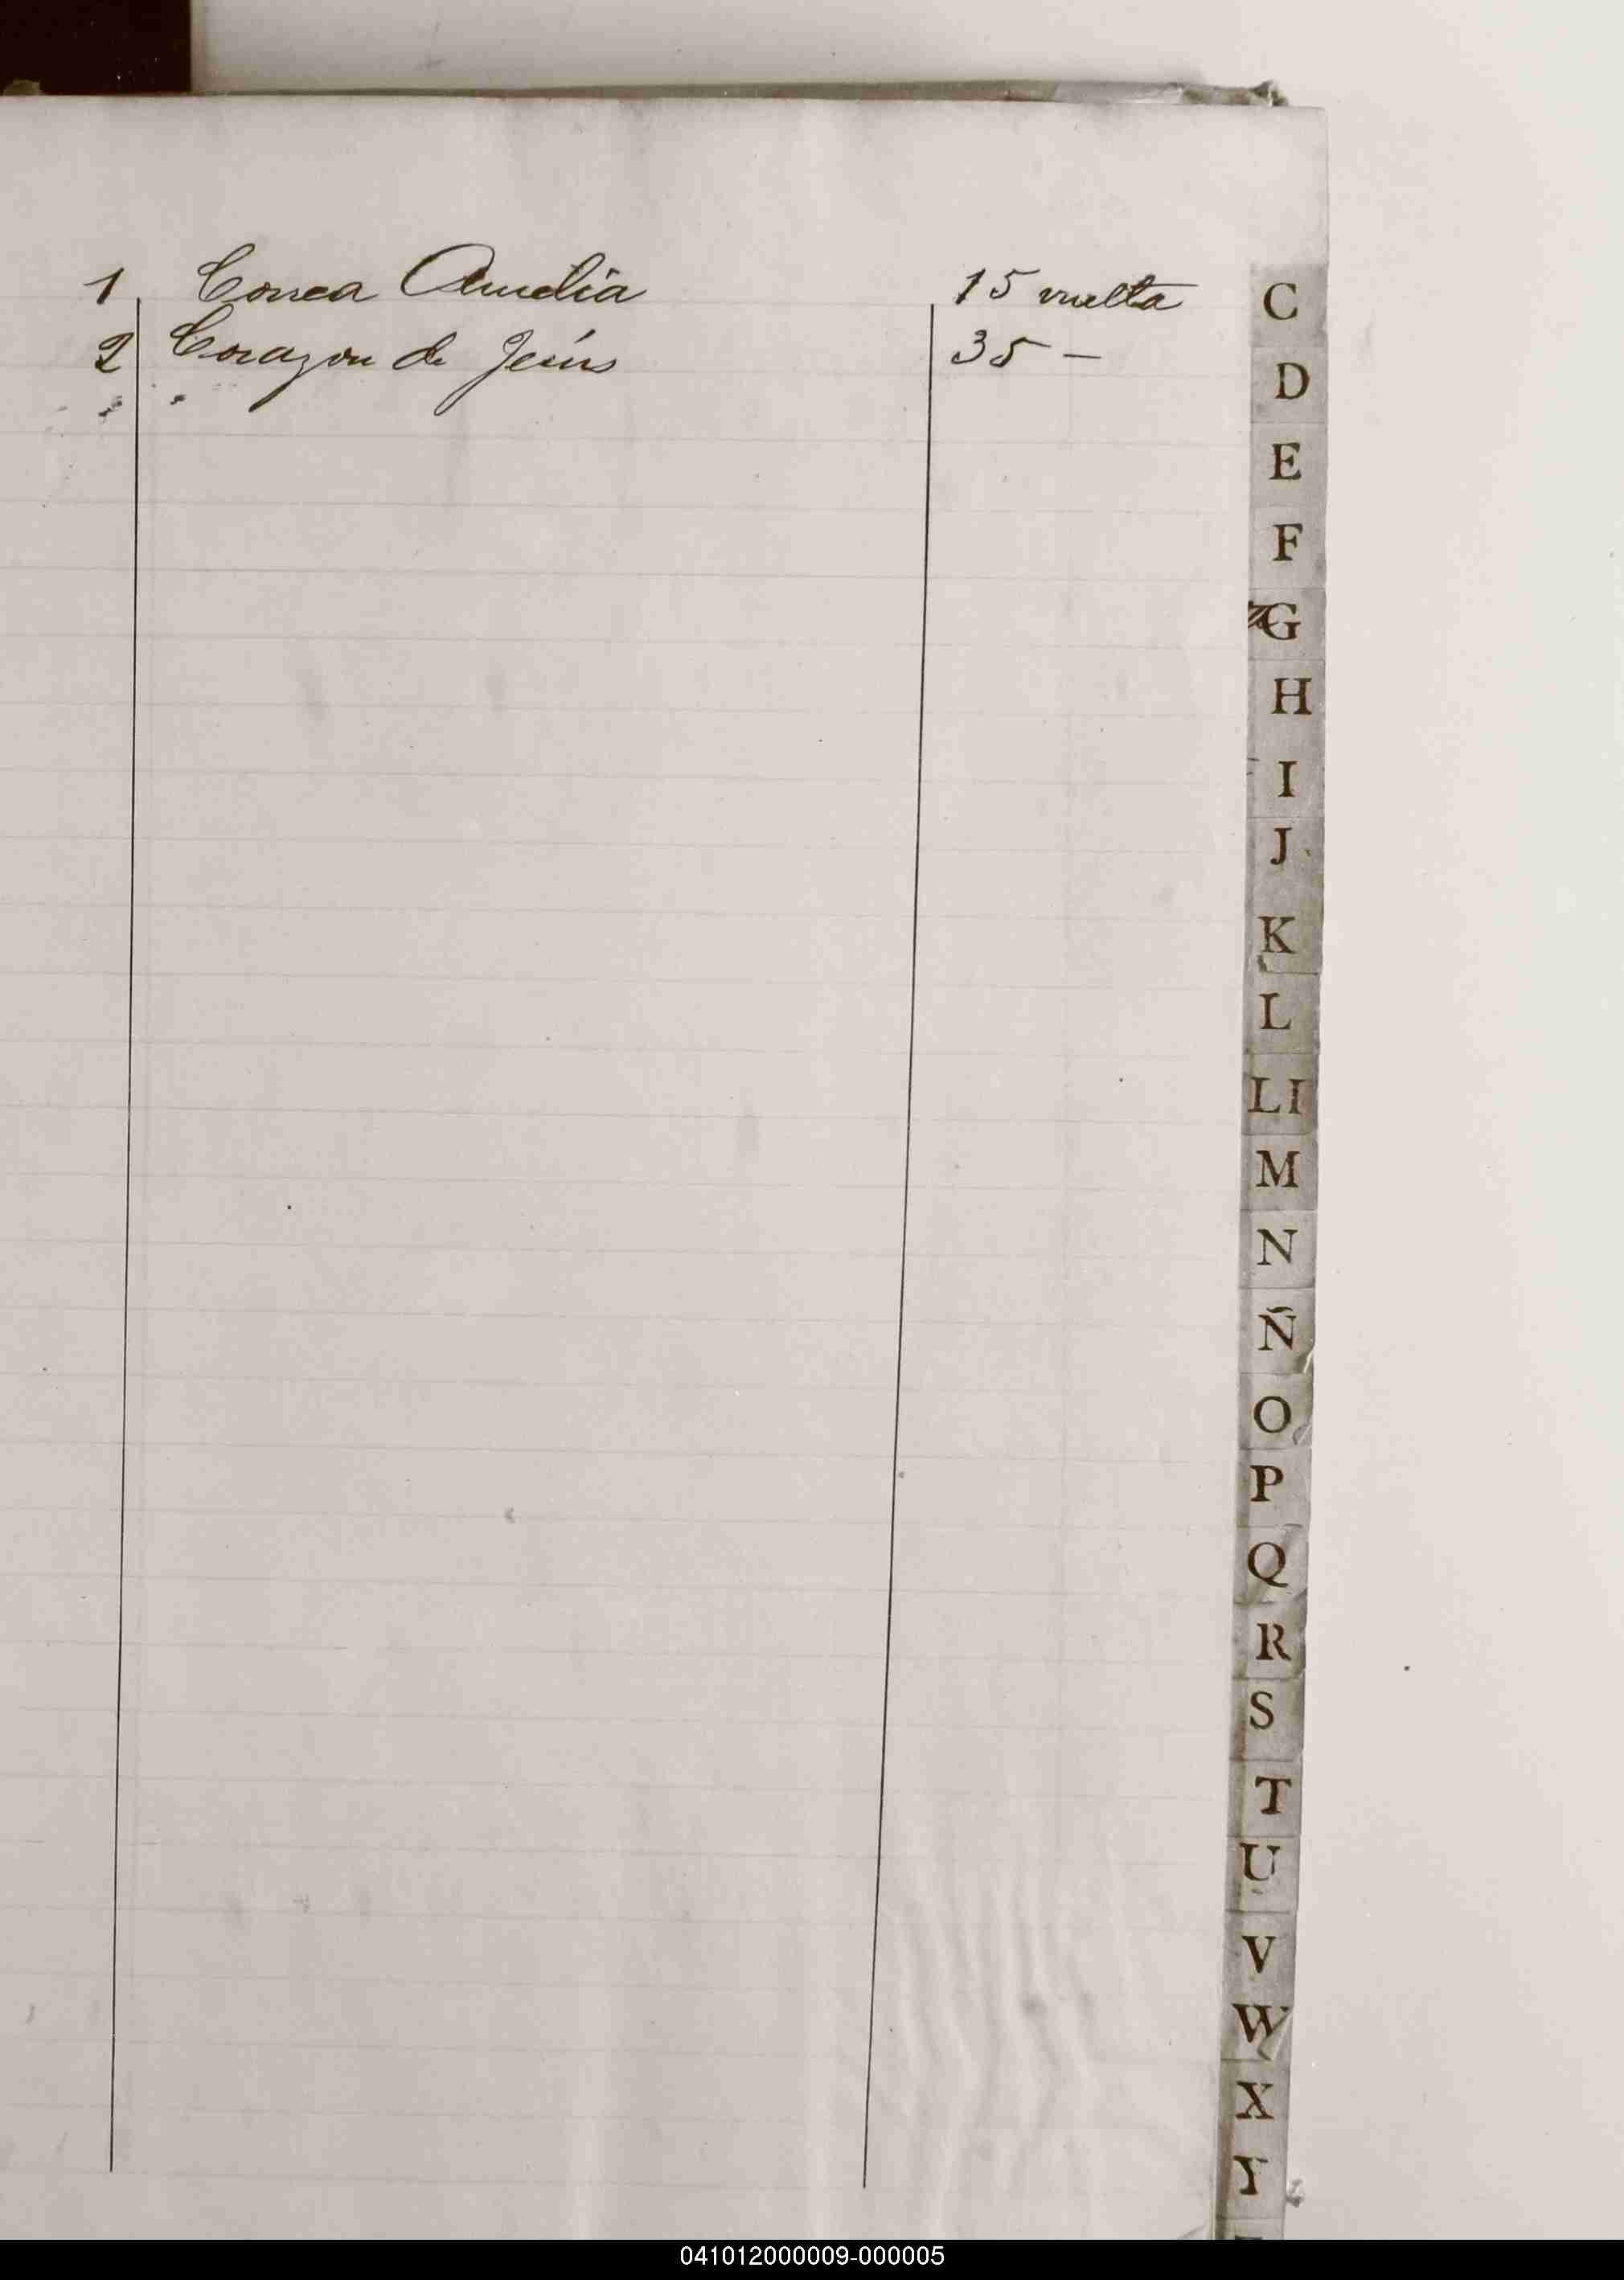 1 Correa Amelia 15 vuelta
2 Corazon de Jesús 35 —
C
D
E
F
G
H
I
J
K
L
Ll
M
N
Ñ
O
P
Q
R
S
T
U
V
W
X
Y
041012000009-000005